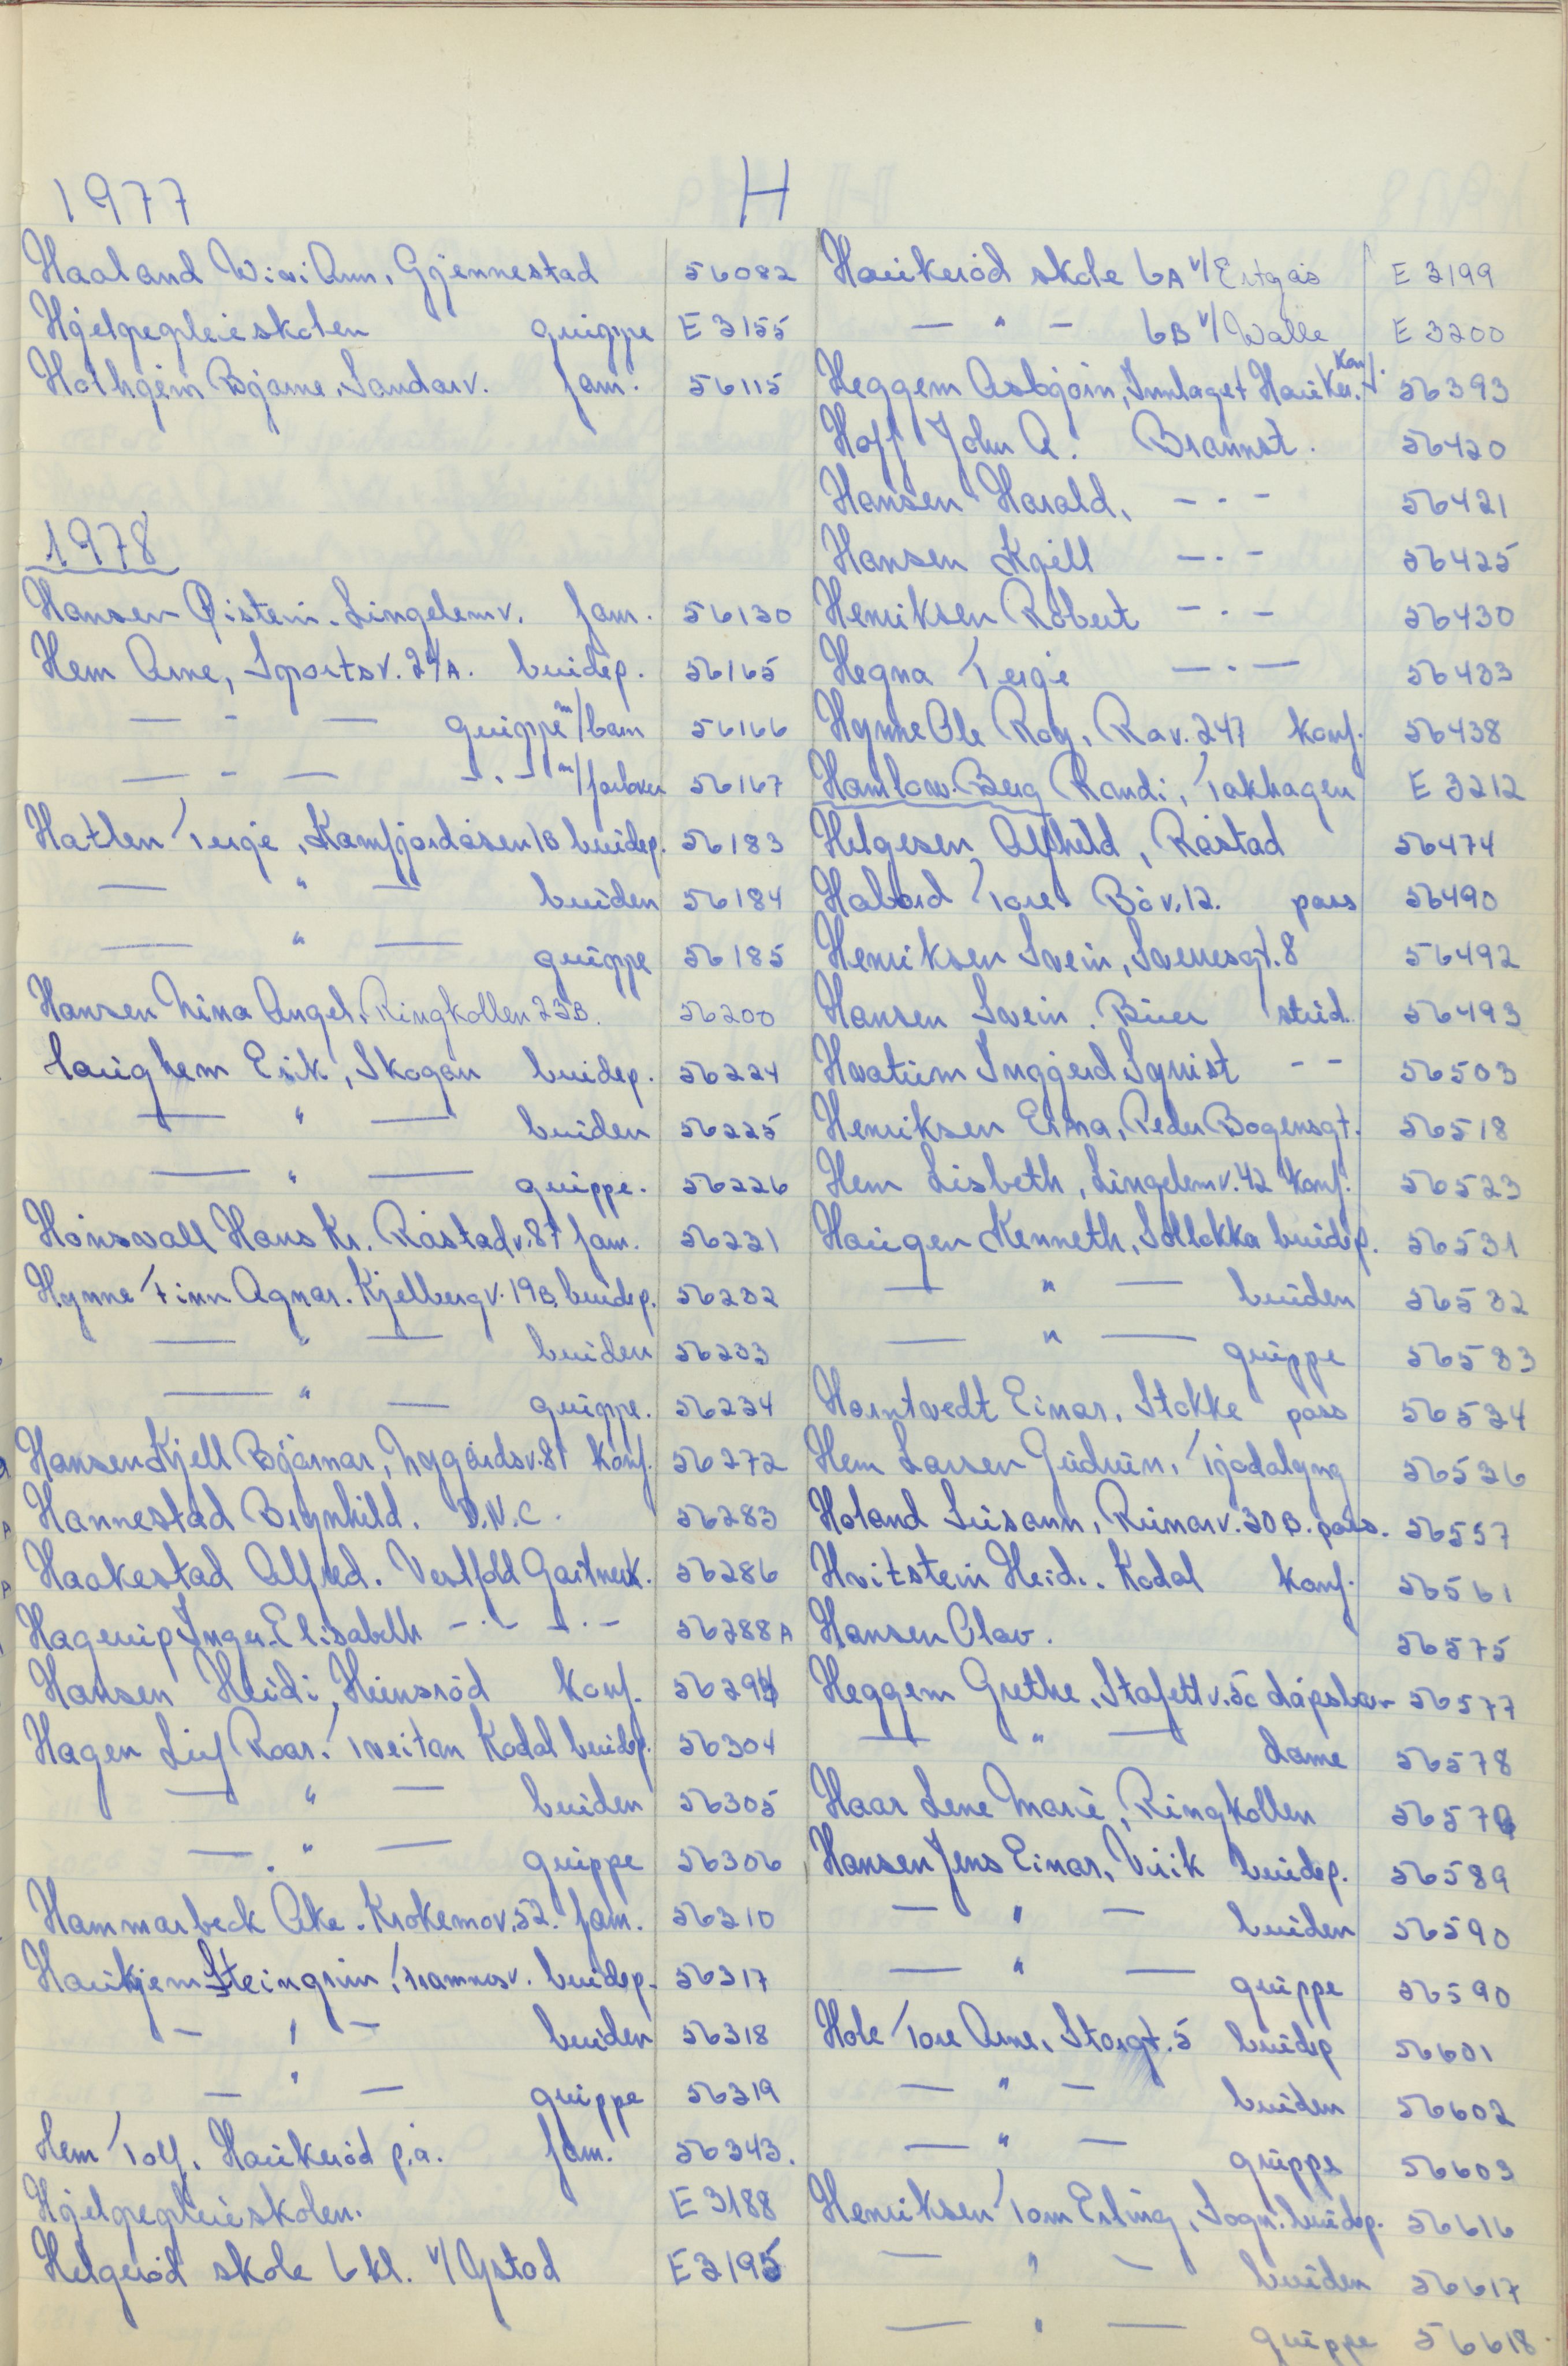 1977 H
Haaland Wivi Ann, Gjennestad 56082
Hjelpepleieskolen gruppe E 3155
Hothgem Bjarne, Sandarv. fam. 56115
1978
Hansen Øistein. Lingelemv. fam. 56130
Hem Arne, Sportsv. 24A. brudep. 56165
— - — gruppe m/barn 56166
— - — -.- m/forlover 56167
Hatlen Terje, Kamfjordåsen 10 brudep. 56183
— " — bruden 56184
— " — gruppe 56185
Hansen Nina Angel. Ringkollen 23B. 56200
Haughem Erik, Skogan brudep. 56224
— " — bruden 56225
— " — gruppe. 56226
Hønsvall Hans Kr. Råstadv. 87 fam. 56231
Hynne Finn Agnar. Kjellbergv. 19B, brudep. 56232
— " — bruden 56233
— " — gruppe. 56234
Hansen Kjell Bjørnar, Nygårdsv. 81 konf. 56272
Hannestad Brynhild. D.N.C. 56283
Haakestad Alfred. Vestfold Gartnerk. 56286
Hagerup Inger-Elisabeth -.- -.- 56288A
Hansen Heidi, Heimsrød konf. 56294
Hagen Leif Roar. Tveitan Kodal brudep. 56304
— " — bruden 56305
— " — gruppe 56306
Hammarbeck Åke. Krokemov. 52. fam. 56310
Haukjem Steingrim, Framnesv. brudep. 56317
— " — bruden 56318
— " — gruppe 56319
Hem Tolf, Haukerød p.å. fam. 56343.
Hjelpepleieskolen. E 3188
Helgerød skole 6 kl. v/ Ystad E 3195
Haukerød skole 6A v/ Ertgås E 3199
— " — 6B v/ Walle E 3200
Heggem Asbjørn, Tunlaget Hauker. Konf. 56393
Hoff John A. Brannst. 56420
Hansen Harald, -.- 56421
Hansen Kjell -.- 56425
Henriksen Robert -.- 56430
Hegna Terje -.- 56433
Hynne Ole Roy, Rav. 247 konf. 56438
Hamlow-Berg Randi, Takhagen E 3212
Helgesen Alfhild, Råstad 56474
Håbård Tore Bøv. 12. pass 56490
Henriksen Svein, Sverresgt. 8 56492
Hansen Svein. Buer stud. 56493
Hvatum Inggjerd Synist - - 56503
Henriksen Erna, Peder Bogensgt. 56518
Hem Lisbeth, Lingelemv. 42 konf. 56523
Haugen Kenneth, Solløkka brudep. 56531
— " — bruden 56532
— " — gruppe 56533
Horntvedt Einar, Stokke pass 56534
Hem Larsen Gudrun, Tjodalyng 56536
Holand Lisann, Runarv. 30B. pass. 56557
Hvitstein Heidi. Kodal konf. 56561
Hansen Olav. 56575
Heggem Grethe, Stafettv. 5c dåpsbarn 56577
— " — dame 56578
Haar Lene Marie, Ringkollen 56579
Hansen Jens Einar, Virik brudep. 56589
— " — bruden 56590
— " — gruppe 56590
Hole Tore Arne, Storgt. 5 brudep 56601
— " — bruden 56602
— " — gruppe 56603
Henriksen Tom Erling, Sogn. brudep. 56616
— " — bruden 56617
— " — gruppe 56618